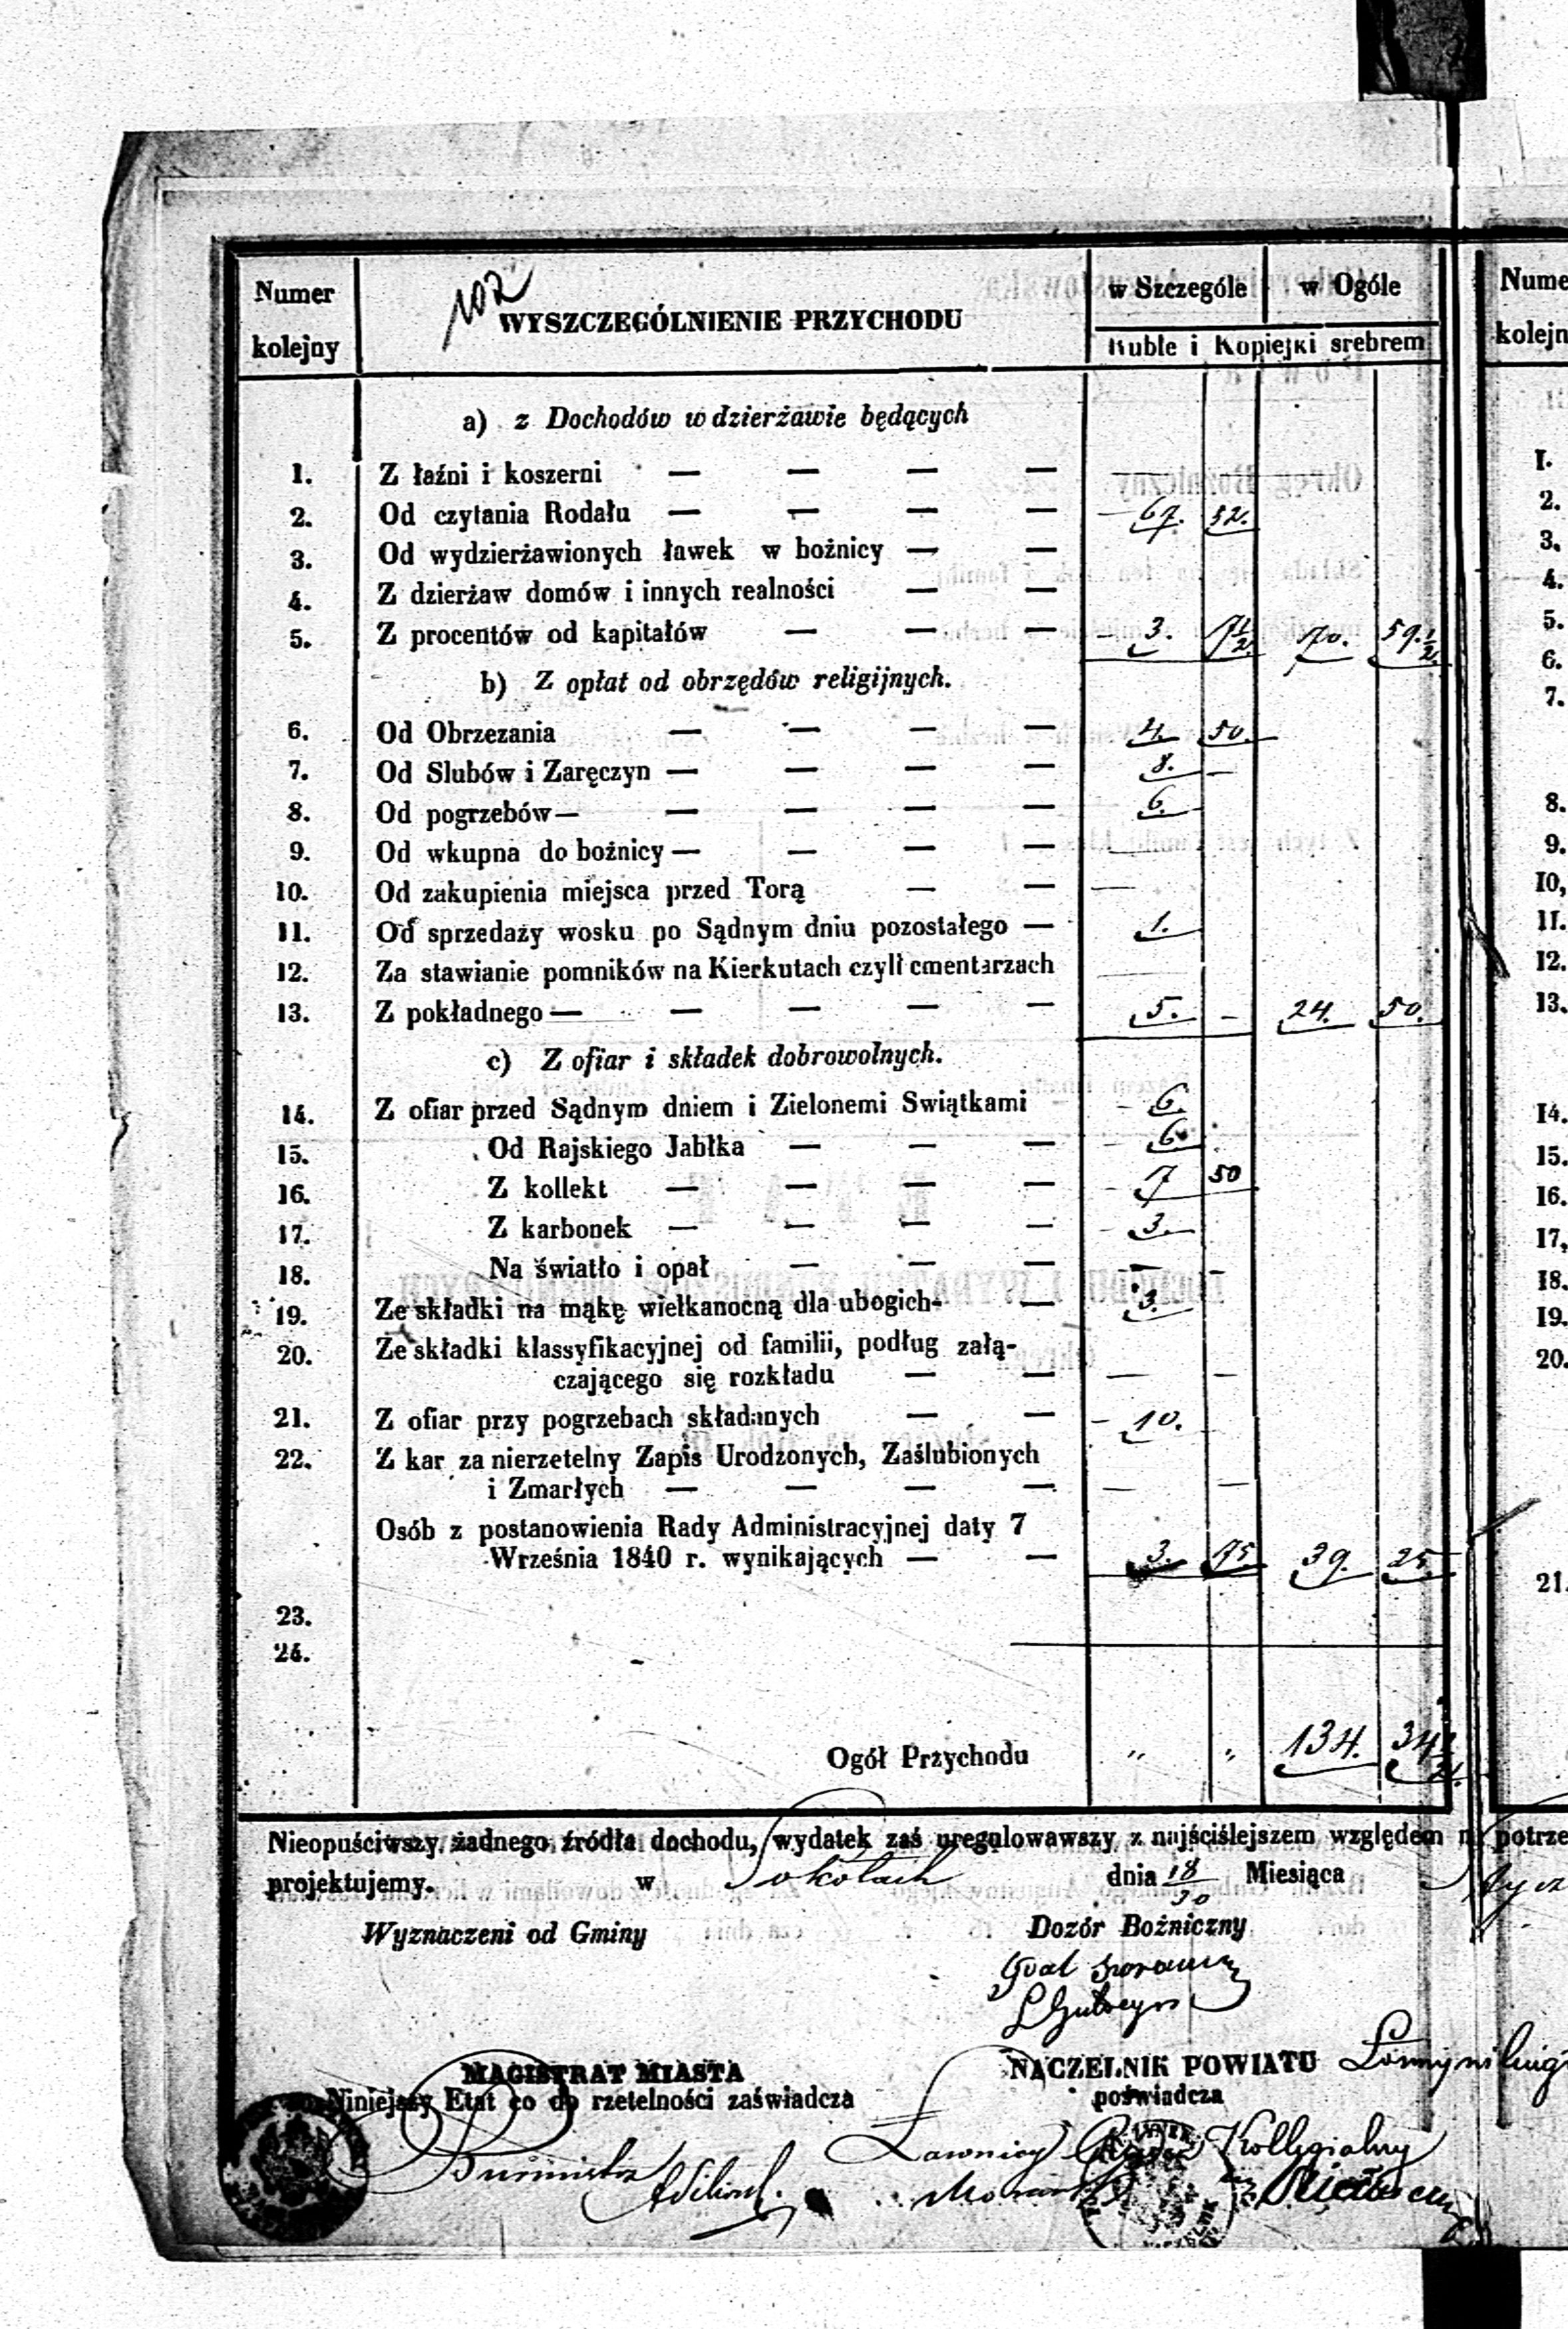 Numer kolejny
102
WYSZCZEGÓLNIENIE PRZYCHODU
w Szczególe w Ogóle
Ruble i Kopiejki srebrem
a) z Dochodów w dzierżawie będących
1. Z łaźni i koszerni — — — — —
2. Od czytania Rodału — — — — 67. 52.
3. Od wydzierżawionych ławek w bożnicy — —
4. Z dzierżaw domów i innych realności — —
5. Z procentów od kapitałów — — — 3. 7½ 70. 59.½
b) Z opłat od obrzędów religijnych.
6. Od Obrzezania — — — — 4. 50.
7. Od Slubów i Zaręczyn — — — — 8. —
8. Od pogrzebów — — — — — 6.
9. Od wkupna do bożnicy — — — — —
10. Od zakupienia miejsca przed Torą — — —
11. Od sprzedaży wosku po Sądnym dniu pozostałego — 1.
12. Za stawianie pomników na Kierkutach czyli cmentarzach —
13. Z pokładnego — — — — — 5. — 24. 50.
c) Z ofiar i składek dobrowolnych.
14. Z ofiar przed Sądnym dniem i Zielonemi Swiątkami 6.
15. Od Rajskiego Jabłka — — — 6.
16. Z kollekt — — — — 7 50
17. Z karbonek — — — — 3.
18. Na światło i opał — — — — —
19. Ze składki na mąkę wielkanocną dla ubogich — — 3.
20. Ze składki klassyfikacyjnej od familii, podług załą-
czającego się rozkładu — — — —
21. Z ofiar przy pogrzebach składanych — — 10.
22. Z kar za nierzetelny Zapis Urodzonych, Zaślubionych
i Zmarłych — — — — — —
Osób z postanowienia Rady Administracyjnej daty 7
Września 1840 r. wynikających — — 3. 75 39. 25
23.
24.
Ogół Przychodu " " 134. 34½
Nieopuściwszy żadnego źródła dochodu, wydatek zaś uregulowawszy z najściślejszem względem potrze
projektujemy. w Sokołach dnia 18/30 Miesiąca
Wyznaczeni od Gminy Dozór Bożniczny
MAGISTRAT MIASTA NACZELNIK POWIATU
Niniejszy Etat co do rzetelności zaświadcza poświadcza
Burmistrz Ławnicy Kollegialny
Nume
kolejn
1.
2.
3.
4.
5.
6.
7.
8.
9.
10,
11.
12.
13.
14.
15.
16.
17,
18.
19.
20.
21.